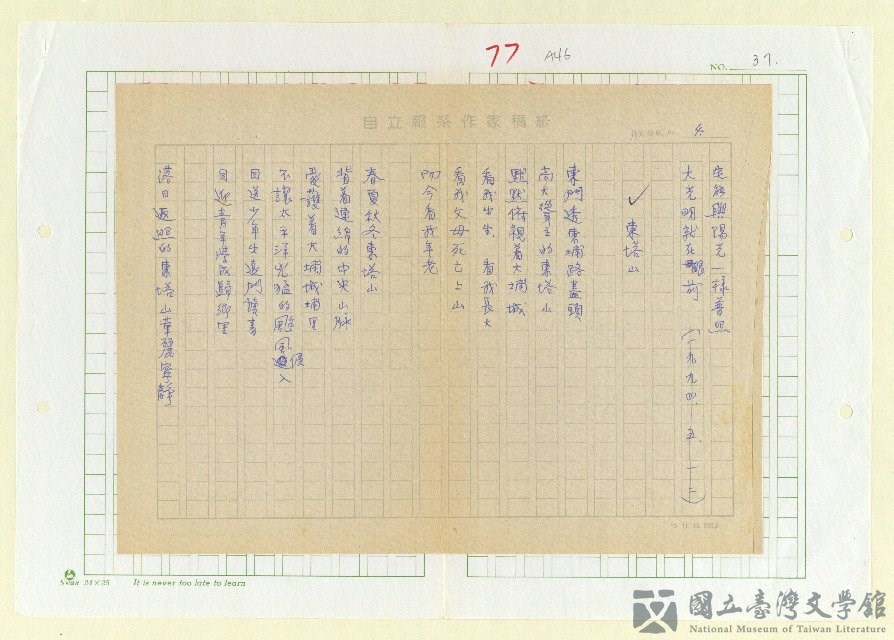 77 A46
NO. 37.
自立報系作家稿紙
4.
定能與陽光一樣普照
大光明就在眼前 (一九九四、五、一二)
✓ 東塔山
東門透東埔路盡頭
高大聳立的東塔山
默默俯視着大埔城
看我出生、看我長大
看我父母死亡上山
如今看我年老
春夏秋冬東塔山
背着連綿的中央山脈
愛護着大埔城埔里
不讓太平洋兇猛的颱風侵入
目送少年出遠門讀書
目迎青年學成歸鄉里
落日返照的東塔山華麗寧靜
Swan 24×25 It is never too late to learn
國立臺灣文學館
National Museum of Taiwan Literature